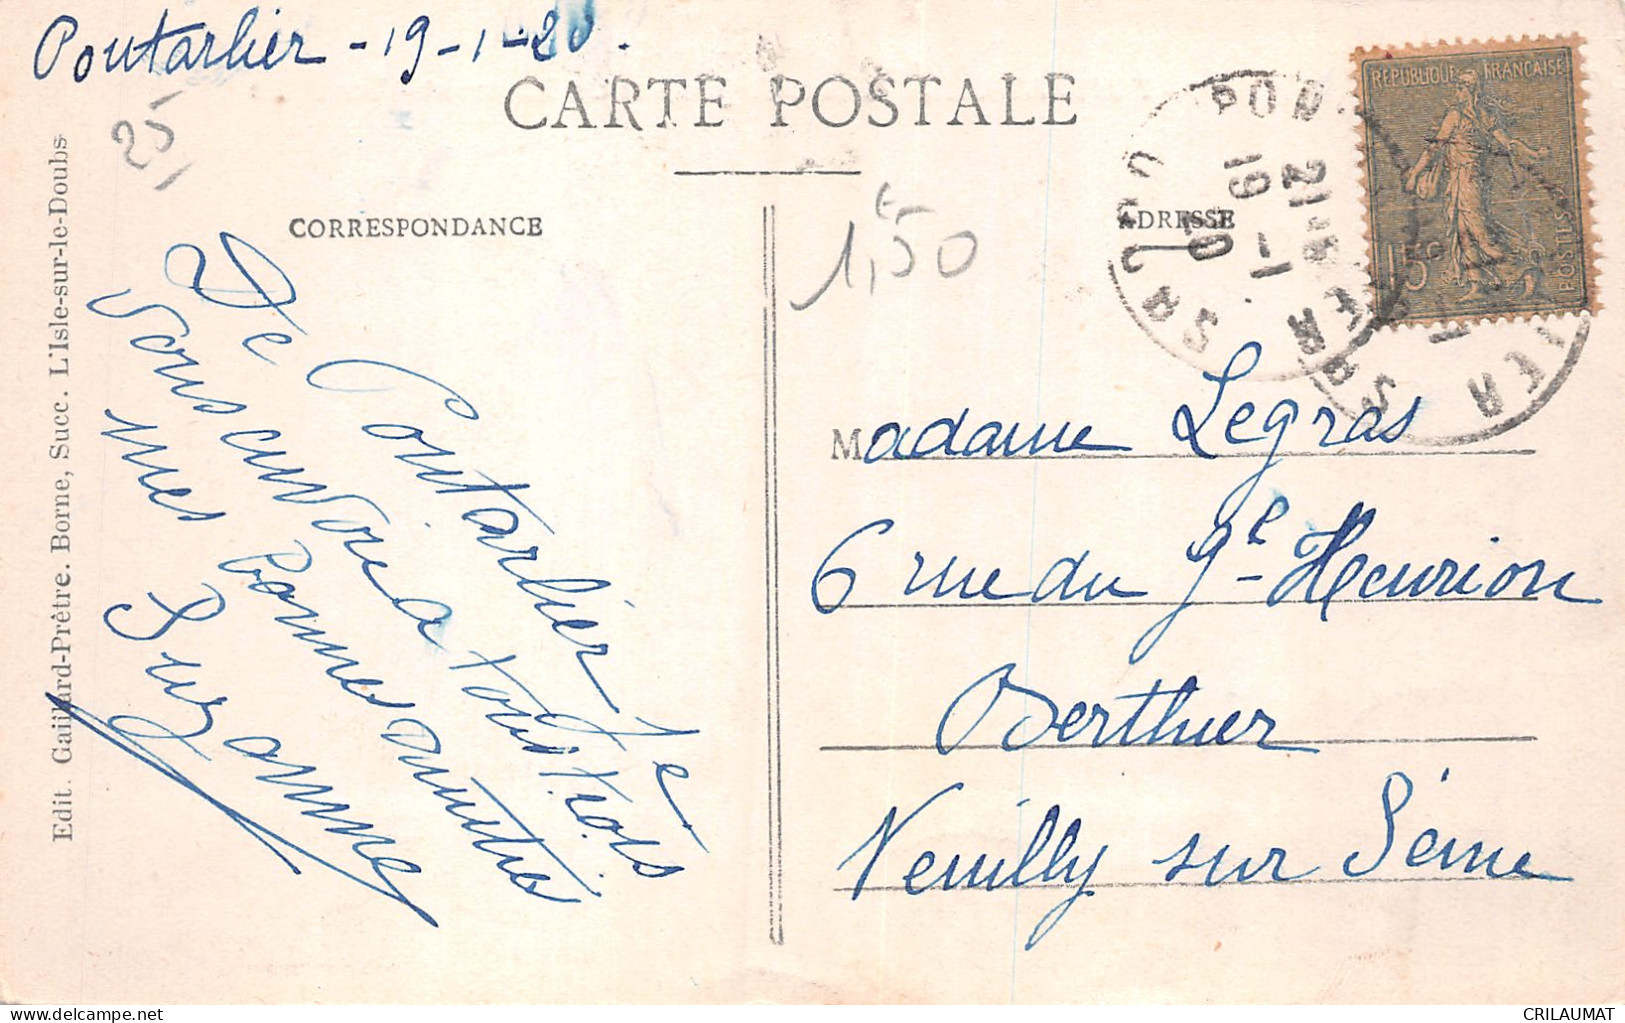 Pontarlier - 19-1-20.
CARTE POSTALE
25
CORRESPONDANCE
ADRESSE
1,50
REPUBLIQUE FRANÇAISE
15c
POSTES
De Pontarlier je
vous envoie a tous trois
mes bonnes amitiés
Suzanne
Madame Legras
6 rue du Gal Henrion
Berthier
Neuilly sur Seine
Edit. Gaillard-Prêtre. Borne, Succ. L'Isle-sur-le-Doubs
19 -1
DOUBS
CRILAUMAT